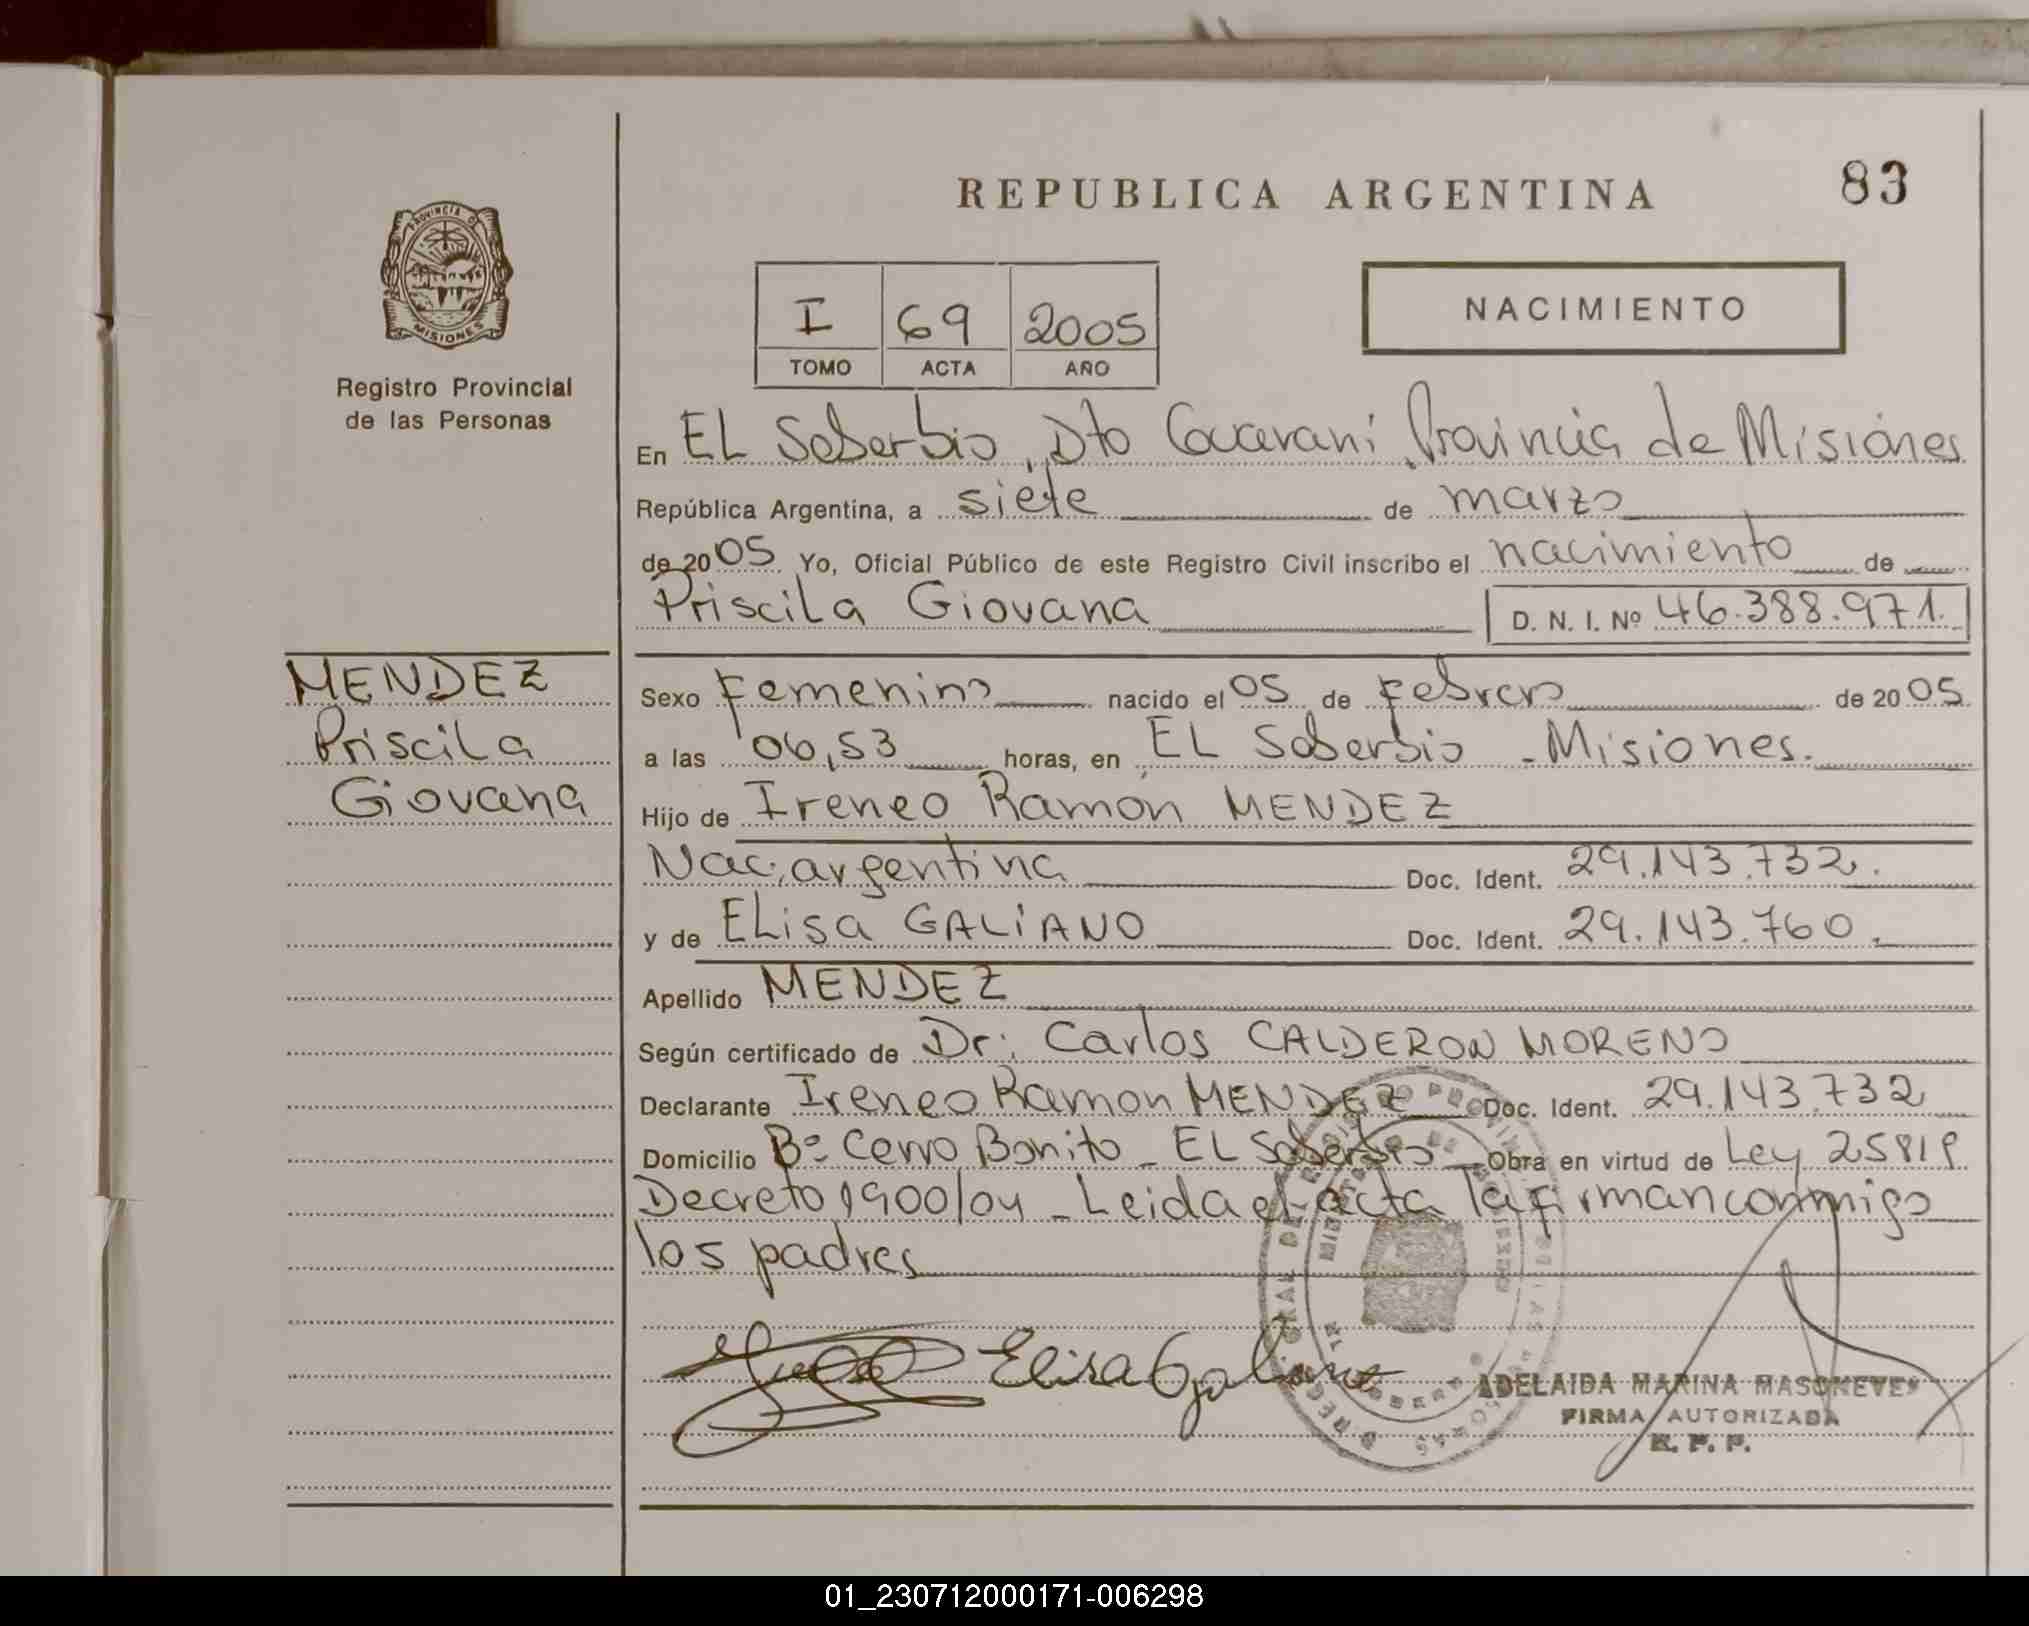 REPUBLICA ARGENTINA
83
PROVINCIA DE
MISIONES
Registro Provincial
de las Personas
I 69 2005
TOMO ACTA AÑO
NACIMIENTO
En EL Soberbio, Dto Guarani Provincia de Misiones
República Argentina, a siete de marzo
de 2005 Yo, Oficial Público de este Registro Civil inscribo el nacimiento de
Priscila Giovana D. N. I. Nº 46.388.971.
MENDEZ
Priscila
Giovana
Sexo Femenino nacido el 05 de Febrero de 2005
a las 06,53 horas, en EL Soberbio - Misiones.
Hijo de Ireneo Ramón MENDEZ
Nac. argentina Doc. Ident. 29.143.732.
y de ELisa GALIANO Doc. Ident. 29.143.760.
Apellido MENDEZ
Según certificado de Dr. Carlos CALDERON MORENO
Declarante Ireneo Ramon MENDEZ Doc. Ident. 29.143.732
Domicilio Bº Cerro Bonito - EL Soberbio Obra en virtud de Ley 25819
Decreto 1900/04 - Leida el acta la firman conmigo
los padres
Elisa Galiano
ADELAIDA MARINA MASONEVES
FIRMA AUTORIZADA
R. P. P.
01_230712000171-006298